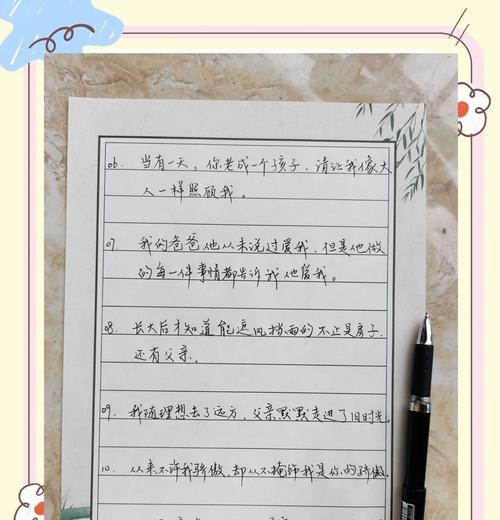 06. 当有一天，你老成一个孩子，请让我像大
人一样照顾我。
07. 我的爸爸他从来说过爱我，但是他做
的每一件事情都告诉我他爱我。
08. 长大后才知道能遮风挡雨的不止是房子，
还有父亲。
09. 我随理想去了远方，父亲默默走进了旧时光。
10. 从来不许我骄傲，却从不掩饰我是你的骄傲。